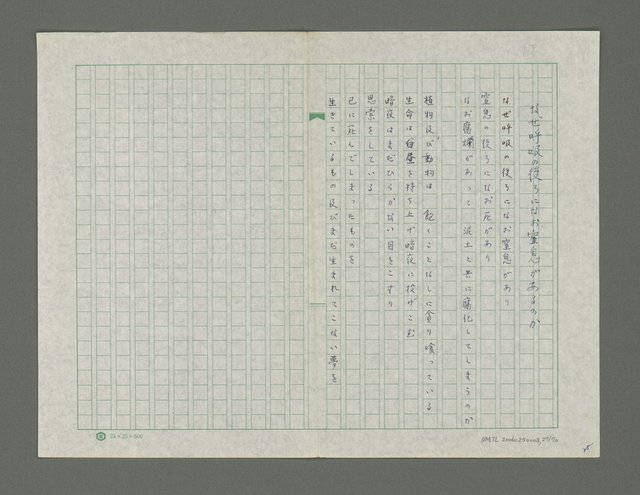 なぜ呼吸の後ろになお窒息があるのか
なぜ呼吸の後ろになお窒息があり
窒息の後ろになお死があり
なお腐爛があって 泥土と共に腐化してしまうのか
植物及び動物は 飽くことなしに貪り喰っている
生命は白昼を持ち上げ暗夜に投げこむ
暗夜はまだひらかない目をこすり
思索をしている
已に死んでしまったものを
生きているもの及びまだ生まれてこない夢を
24×25=600